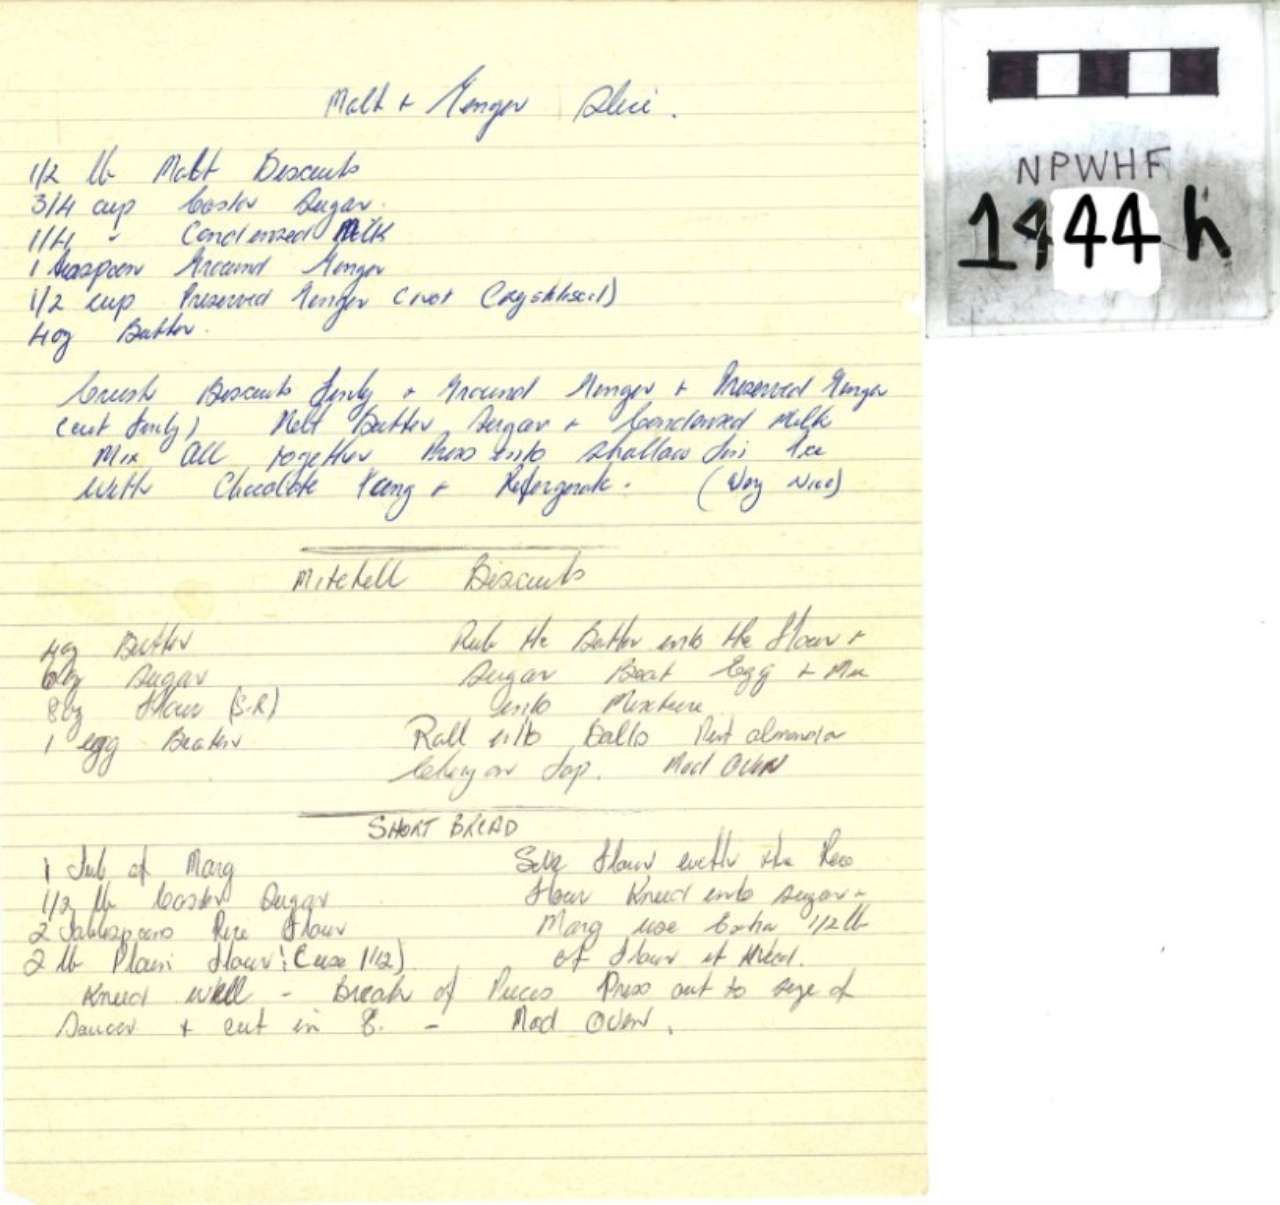 Malt + Ginger Slice.
1/2 lb Malt Biscuits
3/4 cup Castor Sugar.
1/4 " Condensed Milk
1 teaspoon Ground Ginger
1/2 cup Preserved Ginger (not Crystalised)
4oz Butter.
Crush Biscuits finely + Ground Ginger + Preserved Ginger
(cut finely) Melt Butter Sugar + Condensed Milk
Mix All together Press into shallow tin Ice
with Chocolate Icing + Refrigerate. (Very Nice)
Mitchell Biscuits
4oz Butter
6oz Sugar
8oz Flour (S.R)
1 egg Beaten
Rub the Butter into the flour +
Sugar Beat Egg + Mix
into Mixture
Roll into Balls Put almond or
Cherry on top. Mod Oven
SHORT BREAD
1 Tub of Marg
1/2 lb Castor Sugar
2 Tablespoons Rice Flour
2 lb Plain flour! (use 1 1/2)
Sift flour with the Rice
flour Knead into sugar +
Marg use Extra 1/2 lb
of flour if
Knead well - Break of Pieces Press out to size of
Saucer + cut in 8. - Mod Oven.
NPWHF
1444 h